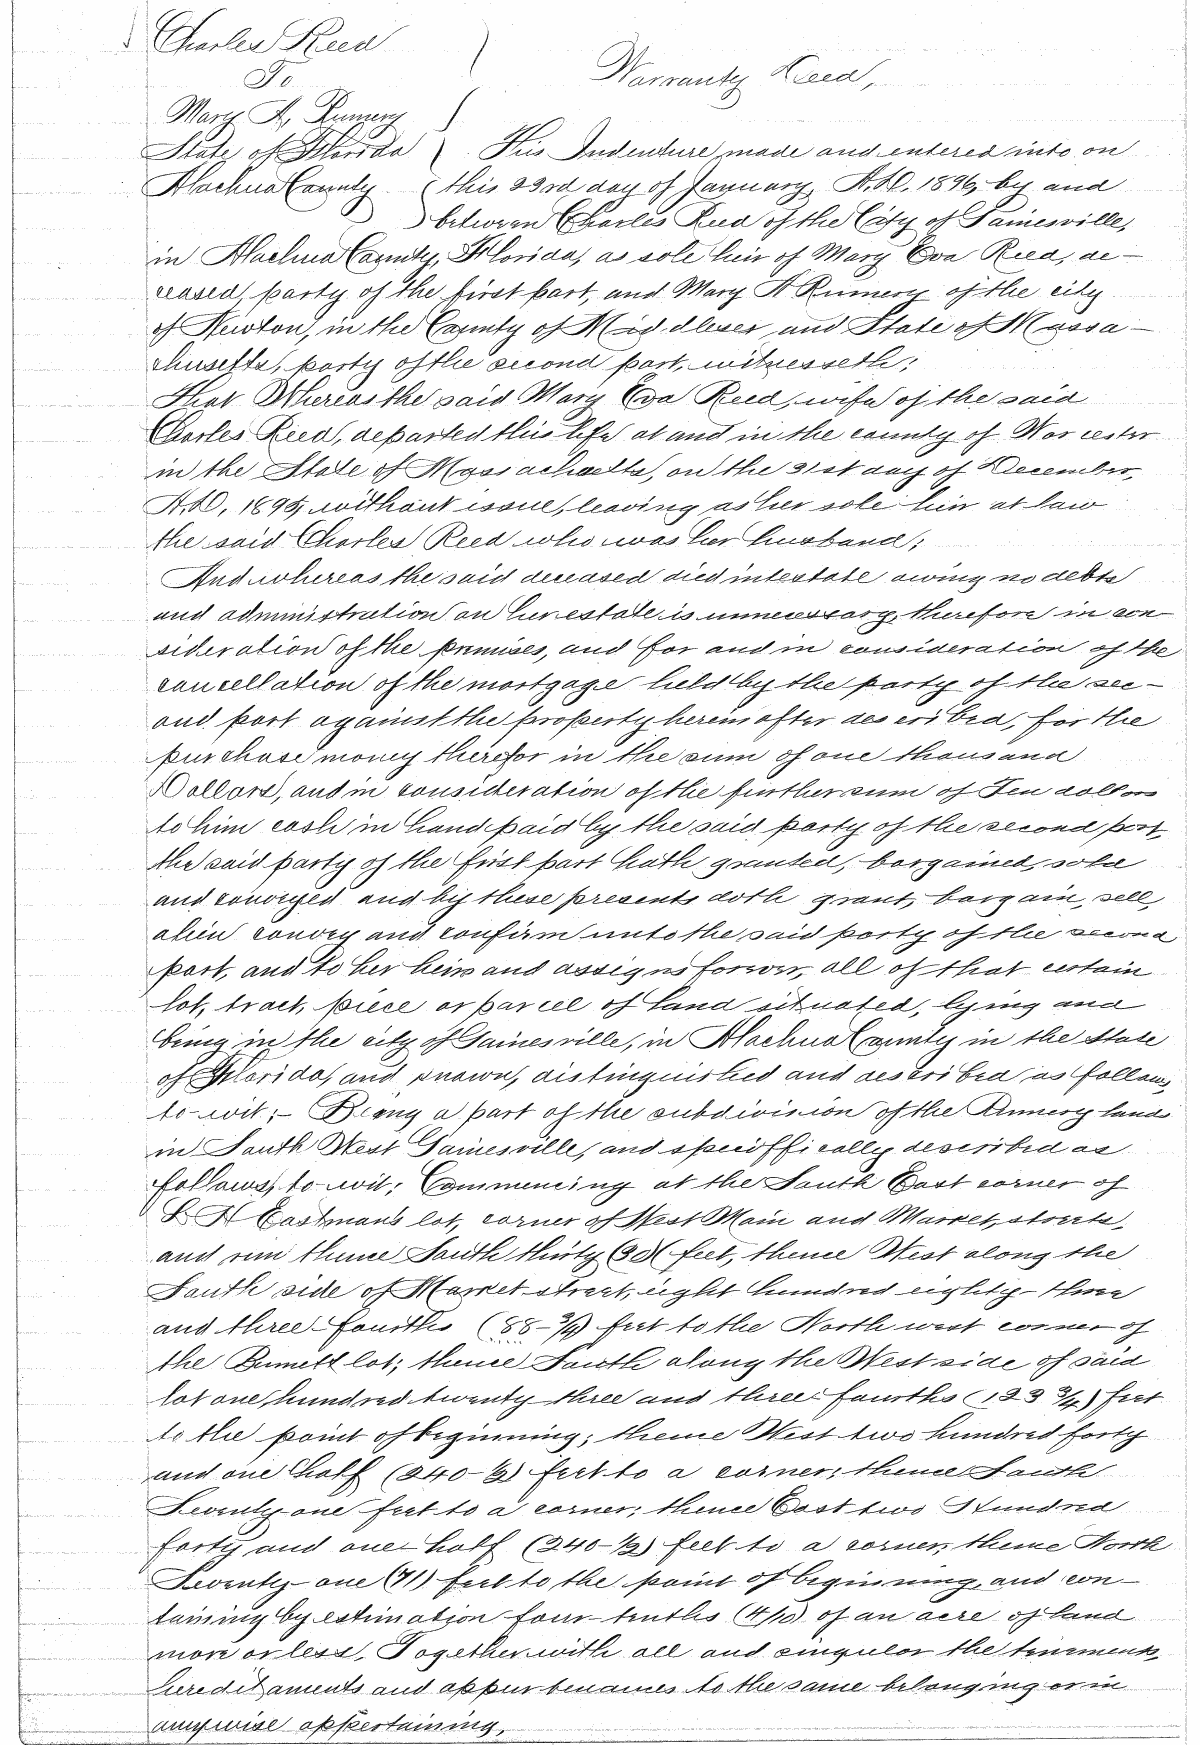 Charles Reed
To
Warranty Deed,
Mary A, Rumery
State of Florida ) This Indenture made and entered into on
Alachua County ( this 23rd day of January, A.D. 1896, by and
) between Charles Reed of the City of Gainesville,
in Alachua County, Florida, as sole heir of Mary Eva Reed, de-
ceased, party of the first part, and Mary A Rumery of the city
of Newton, in the County of Middlesex, and State of Massa-
chusetts, party of the second part, witnesseth;
That Whereas the said Mary Eva Reed, wife of the said
Charles Reed, departed this life at and in the county of Worcester
in the State of Massachusetts, on the 31st day of December,
A.D, 1895, without issue, leaving as her sole heir at law
the said Charles Reed who was her husband;
And whereas the said deceased died intestate owing no debts
and administration on her estate is unnecessary, therefore in con
sideration of the premises, and for and in consideration of the
cancellation of the mortgage held by the party of the sec-
ond part against the property hereinafter described, for the
purchase money therefor in the sum of one thousand
Dollars, and in consideration of the further sum of Ten dollars
to him cash in hand paid by the said party of the second part,
the said party of the first part hath granted, bargained, sold
and conveyed and by these presents doth grant, bargain, sell,
alien convey and confirm unto the said party of the second
part, and to her heirs and assigns forever, all of that certain
lot, tract, piece or parcel of land situated, lying and
being in the city of Gainesville, in Alachua County in the State
of Florida, and known, distinguished and described as follows,
to-wit;- Being a part of the subdivision of the Rumery lands
in South West Gainesville, and speciffically described as
follows, to-wit; Commencing at the South East corner of
Eastman's lot, corner of West Main and Market, streets,
and run thence South thirty (30( feet, thence West along the
South side of Market street, eight hundred eighty-three
and three-fourths (88-3/4) feet to the North west corner of
the Burnett lot; thence South along the West side of said
lot one hundred twenty three and three-fourths (123 3/4) feet
to the point of beginning; thence West two hundred forty
and one half (240-1/2) feet to a corner; thence South
Seventy-one feet to a corner; thence East two Hundred
forty and one-half (240-1/2) feet to a corner, thence North
Seventy-one (71) feet to the point of beginning, and con-
taining by estimation four-tenths (4/10) of an acre of land
more or less. Together with all and singular the tenements,
hereditaments and appurtenances to the same belonging or in
anywise appertaining,